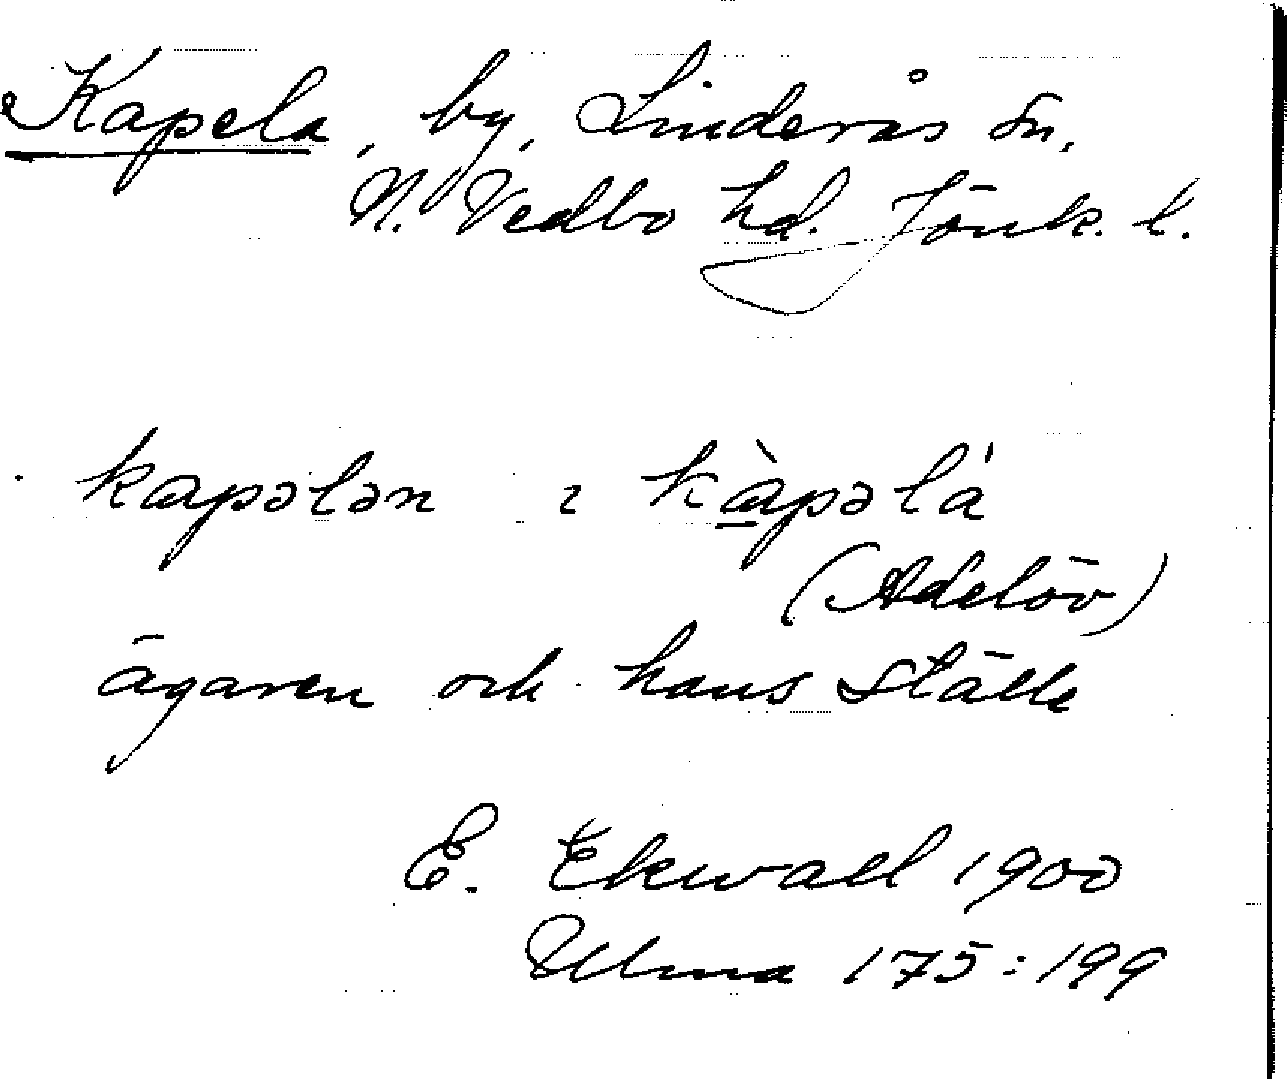 Kapela, by, Linderås sn,
N. Vedbo hd. Jönk. l.
kapələn ı kàpəlá
(Adelöv)
ägaren och hans ställe
E. Ekwall 1900
Ulma 175:199